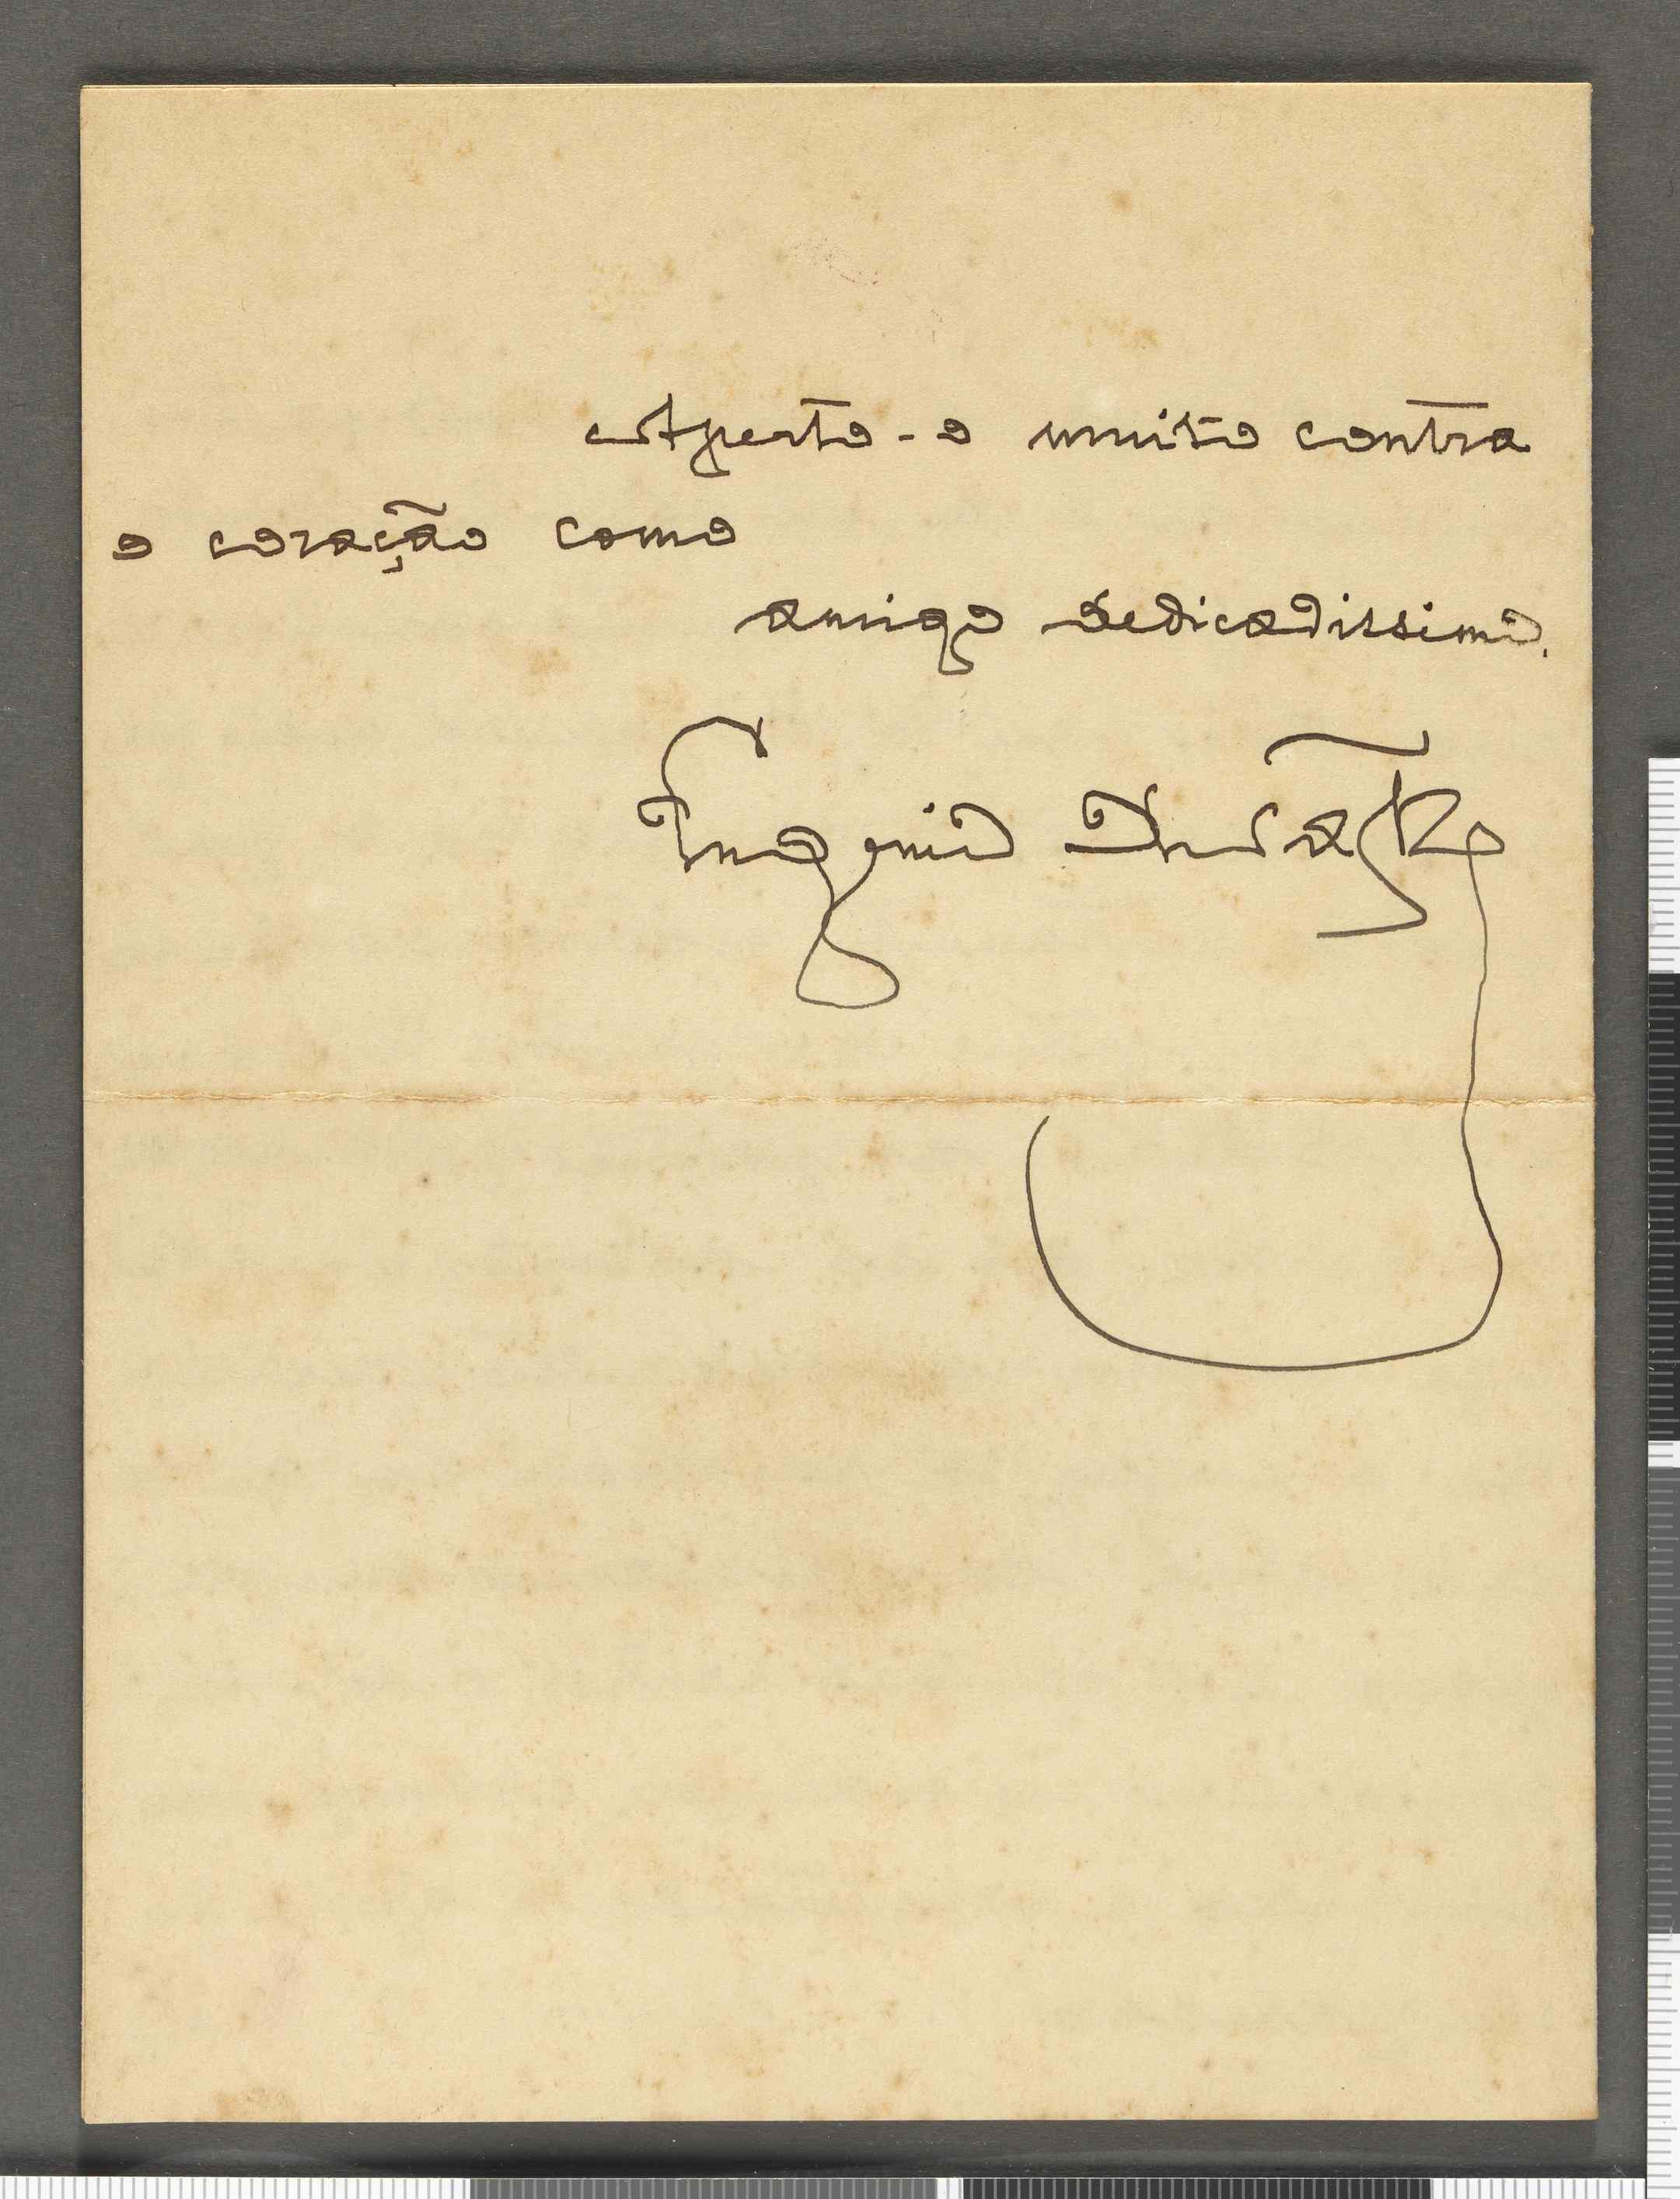 Aperto-o muito contra
o coração como
amigo dedicadissimo.
Eugenio de Castro